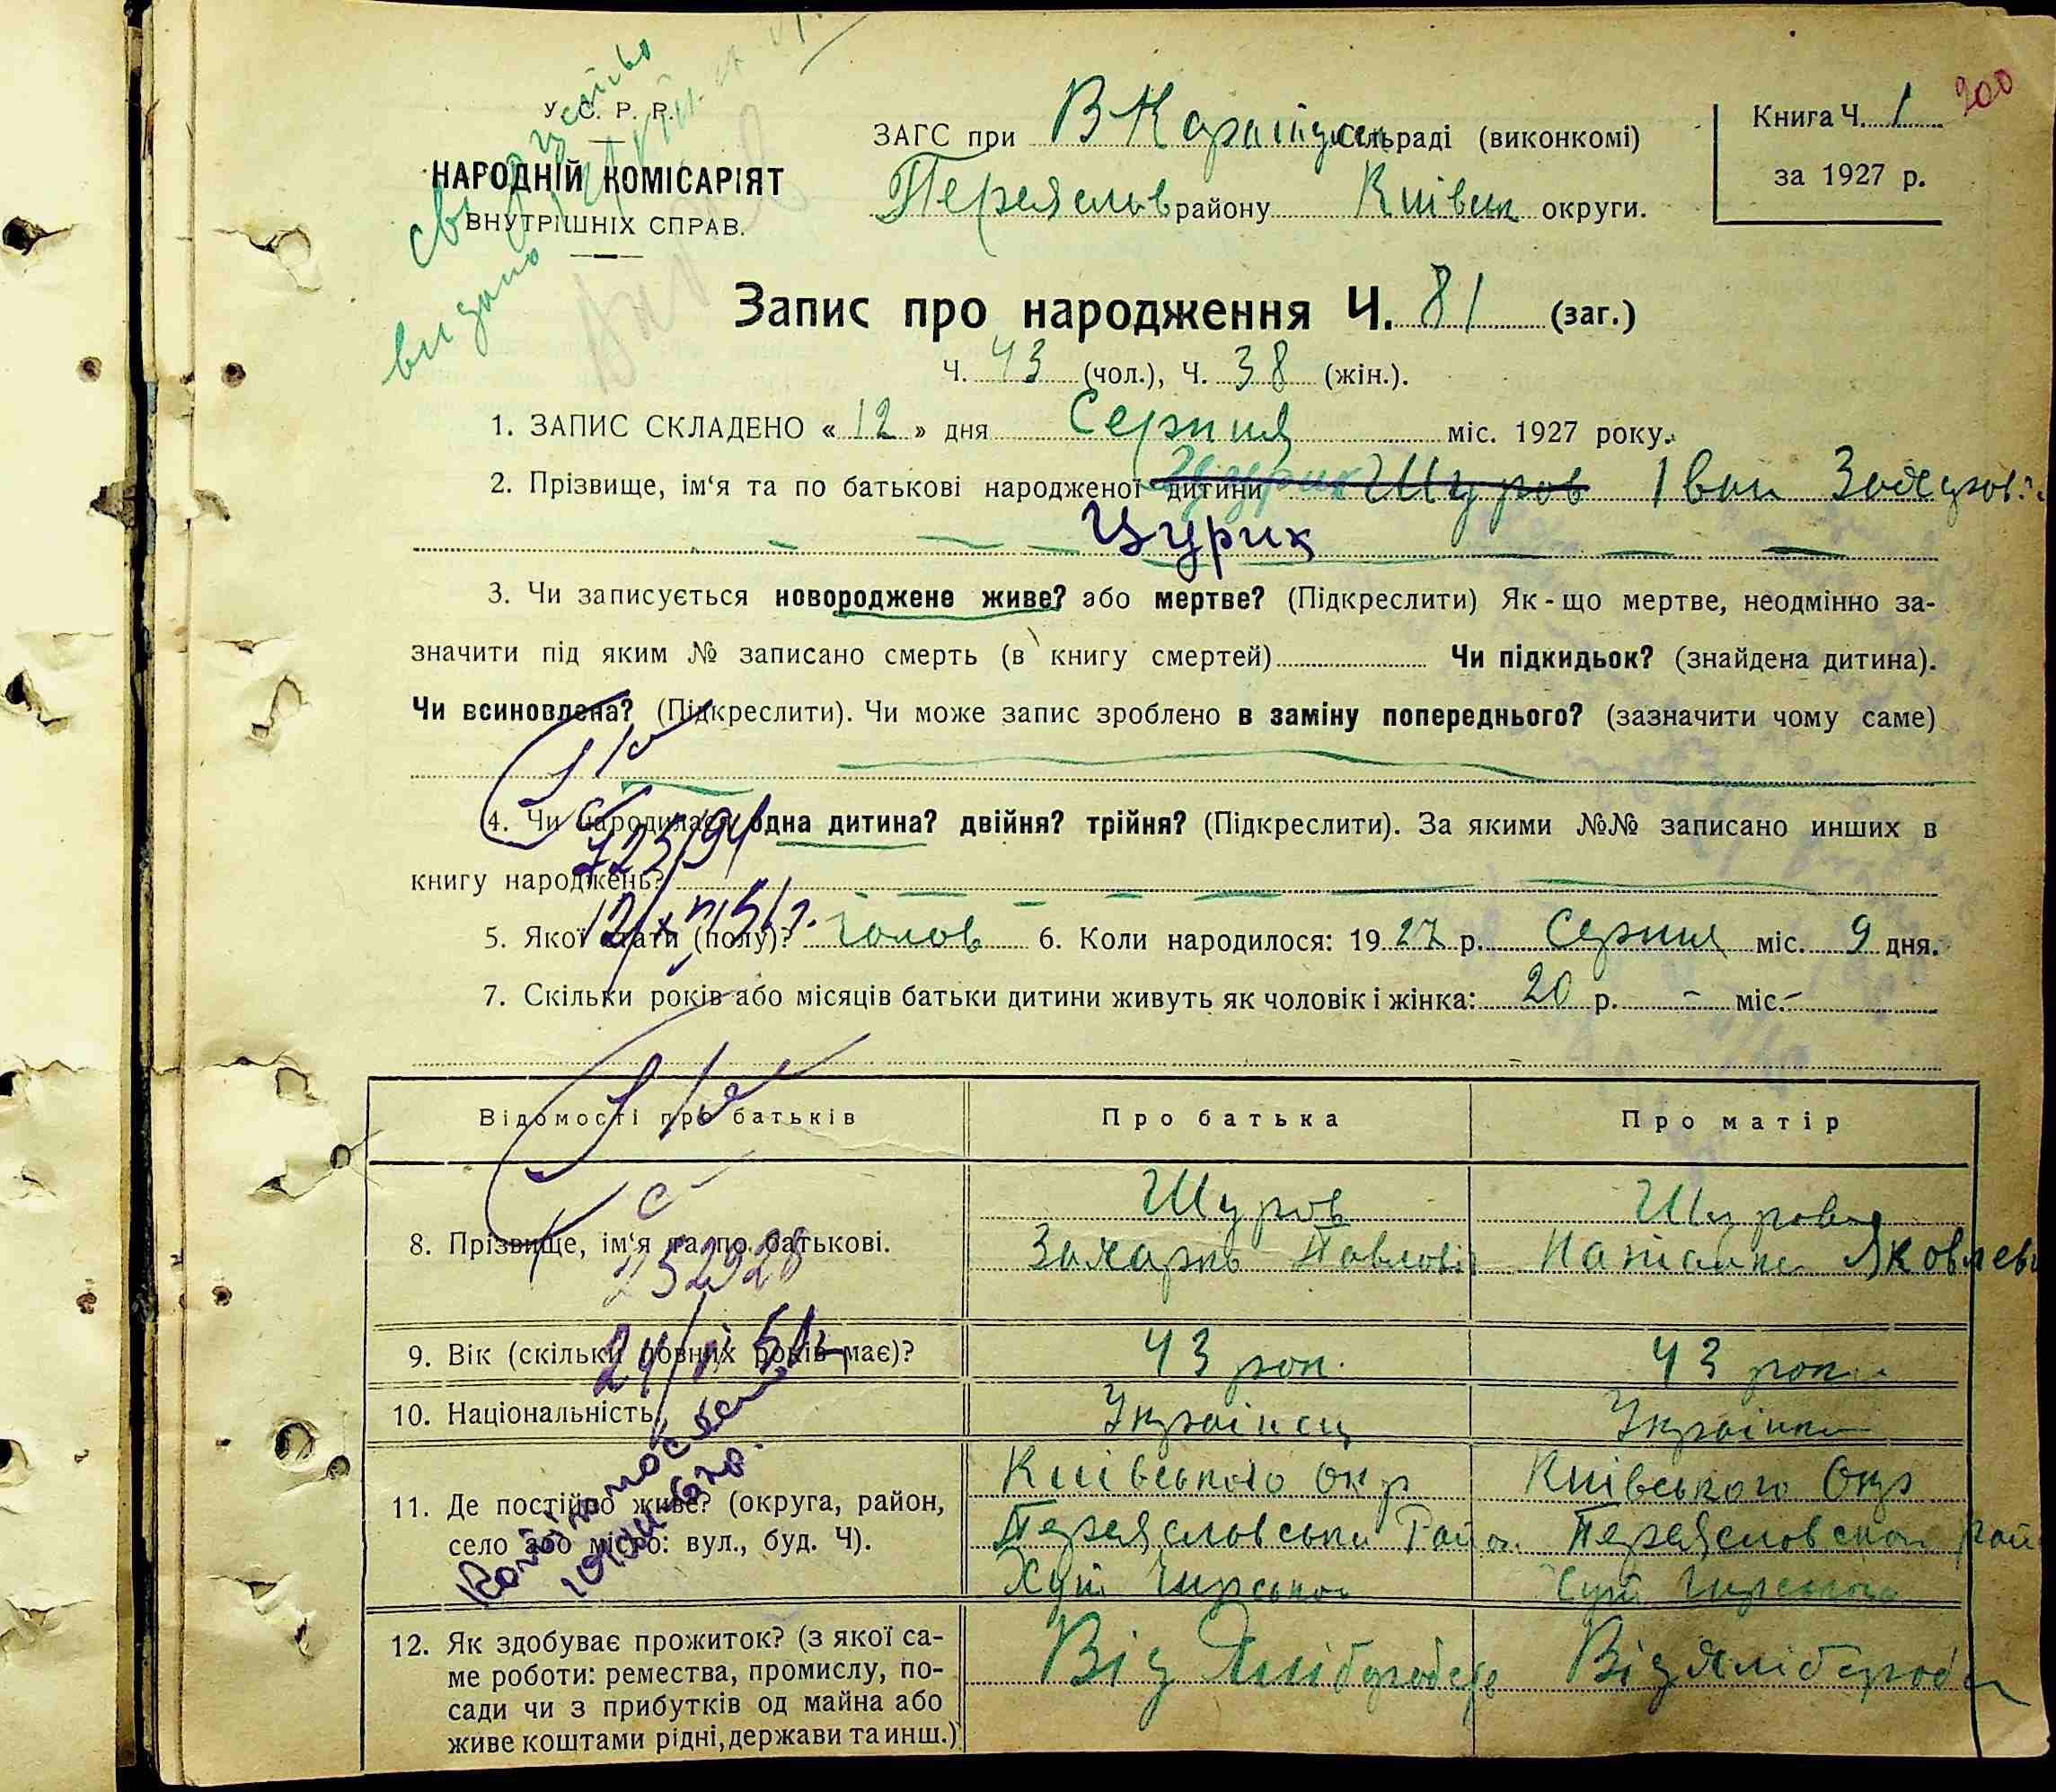 У. С. Р. Р.
НАРОДНІЙ КОМІСАРІЯТ
ВНУТРІШНІХ СПРАВ.
свидоцтво
видано
ЗАГС при В Каратул Сільраді (виконкомі)
Переяслав району Київськ округи.
Книга Ч. 1
за 1927 р.
200
Запис про народження Ч. 81 (заг.)
Ч. 43 (чол.), Ч. 38 (жін.).
1. ЗАПИС СКЛАДЕНО « 12 » дня Серпня міс. 1927 року.
2. Прізвище, ім‘я та по батькові народженої дитини Щуров Іван
Цурик
3. Чи записується новороджене живе? або мертве? (Підкреслити) Як-що мертве, неодмінно за-
значити під яким № записано смерть (в книгу смертей) Чи підкидьок? (знайдена дитина).
Чи всиновлена? (Підкреслити). Чи може запис зроблено в заміну попереднього? (зазначити чому саме)
4. Чи народилася одна дитина? двійня? трійня? (Підкреслити). За якими №№ записано инших в
книгу народжень?
5. Якої стати (полу)? Чолов 6. Коли народилося: 1927 р. Серпня міс. 9 дня.
7. Скільки років або місяців батьки дитини живуть як чоловік і жінка: 20 р. – міс. –
Відомості про батьків Про батька Про матір
8. Прізвище, ім‘я та по батькові.
Щуров Щурова
Захарко Павлов Наталка Яковлев
252928
9. Вік (скільки повних років має)? 43 рок. 43 рок.
10. Національність Українец Українка
11. Де постійно живе? (округа, район,
село або місто: вул., буд. Ч).
Київського окр Київського Окр
Переясловськи Район. Переясловского рай
Хут Чирського Хут Чирського
12. Як здобуває прожиток? (з якої са-
ме роботи: ремества, промислу, по-
сади чи з прибутків од майна або
живе коштами рідні, держави та инш.)
Від Хлібороб Від Хлібороб